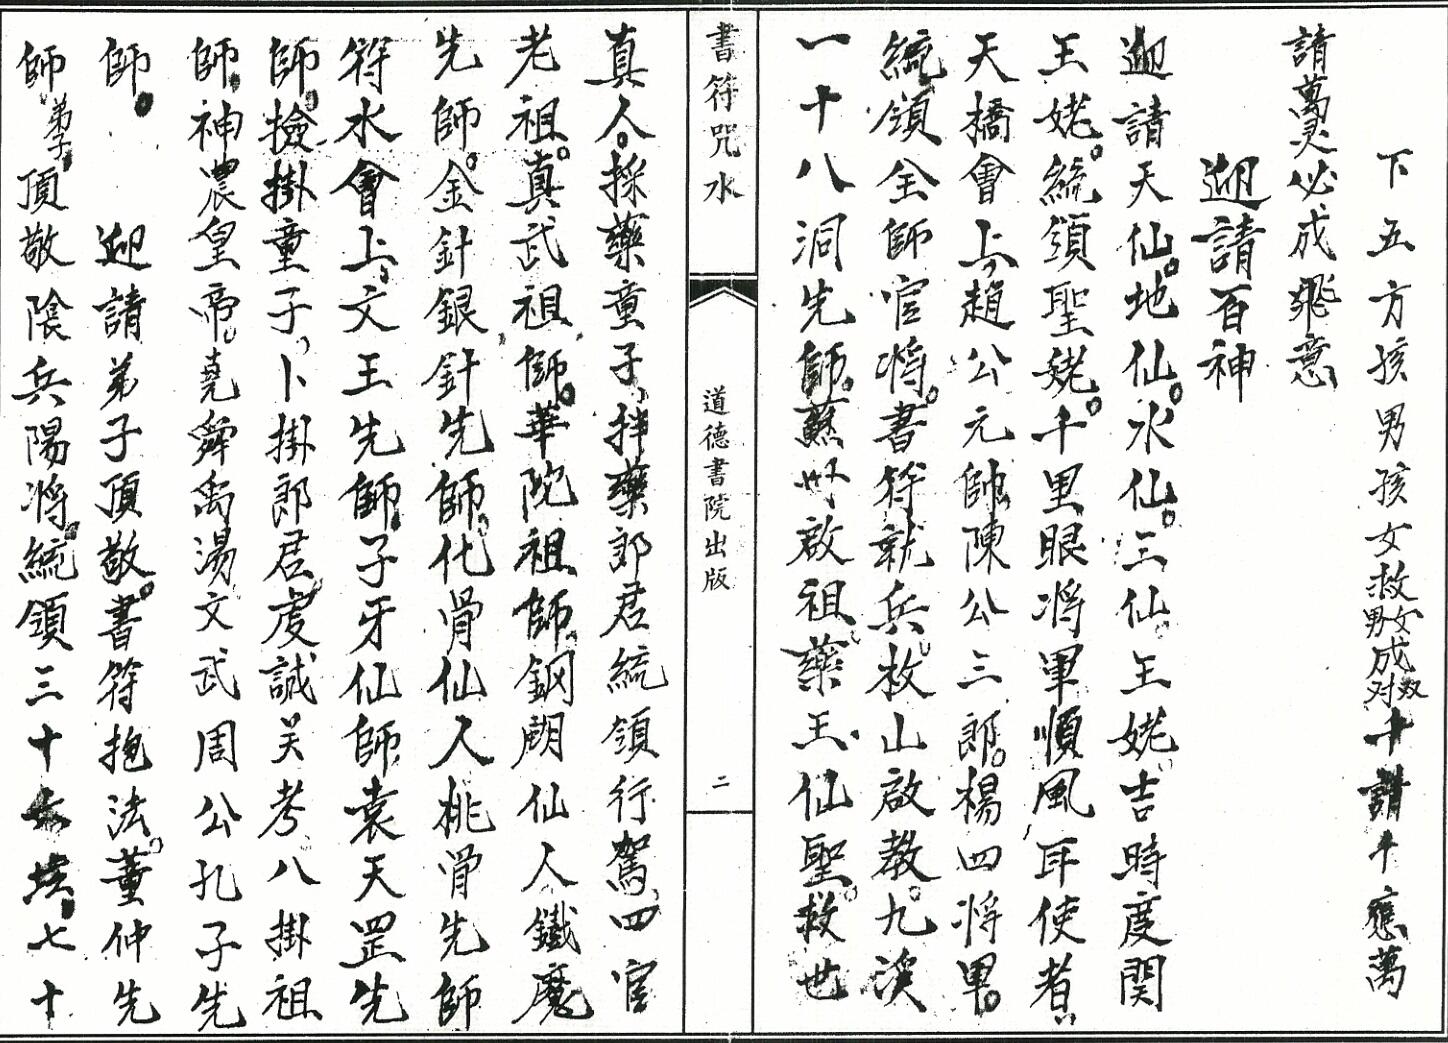 下五方孩男孩女救男女成对双千請千應萬
請萬灵必成飛意
迎請百神
迎請天仙。地仙。水仙。三仙。王姥。吉時度関
王姥。統領聖姥。千里眼将軍順風耳使者
天橋會上趙公元帥陳公三郎。楊四将軍。
統領全師官将。書符就兵。放山啟教。九溪
一十八洞先師。啟祖藥王仙聖。救世
書符咒水
道德書院出版
二
真人。採藥童子。拌藥郎君統領行駕四官
老祖。真武祖師。華陀祖師。鋼胡仙人鐵魔
先師。金針銀針先師。化骨仙人桃骨先師
符水會上文王先師。子牙仙師袁天罡先
師。撿掛童子卜掛郎君虔誠关考八掛祖
師。神農皇帝。堯舜禹湯文武周公孔子先
師。迎請弟子頂敬。書符抱法。董仲先
師。弟子頂敬陰兵陽将。統領三十七十